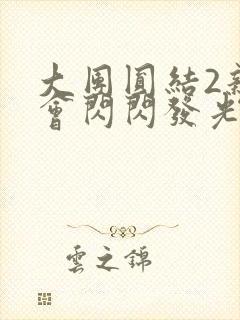 大團圓結2
會閃閃發光
雲之錦